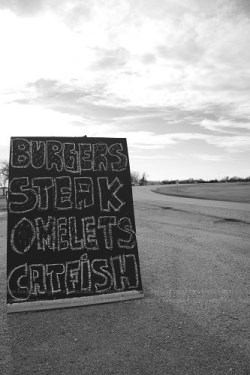 BURGERS
STEAK
OMELETS
CATFiSH